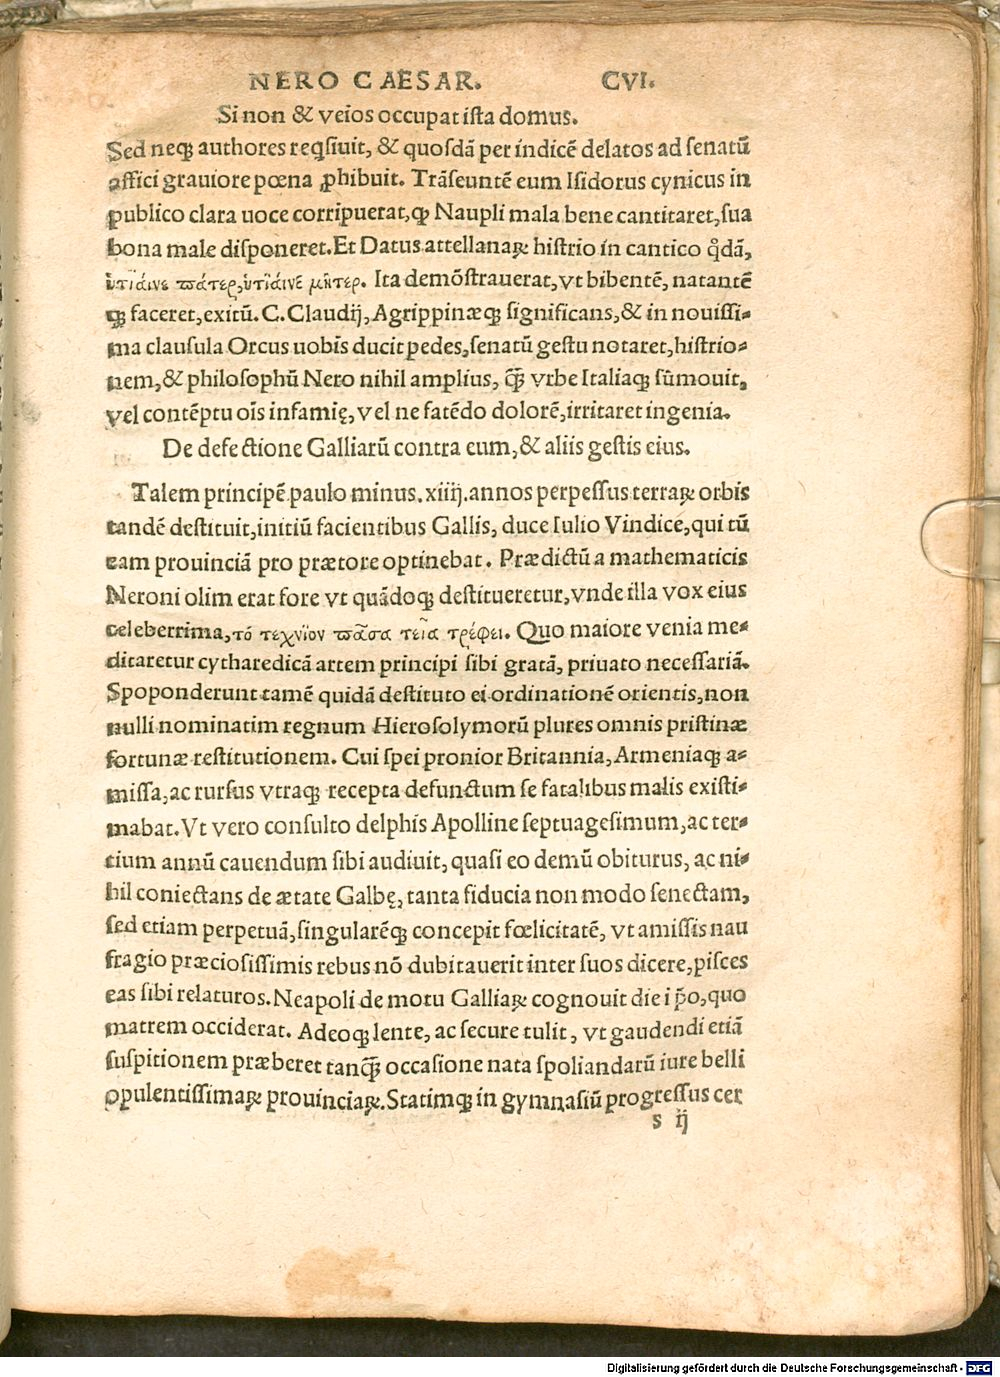 NERO CAESAR. CVI.
Si non & veios occupat ista domus.
Sed neqꝫ authores reqͥsiuit, & quosdā per indicē delatos ad senatū
affici grauiore pœna ꝓhibuit. Trāseuntē eum Isidorus cynicus in
publico clara uoce corripuerat, ꝙ Naupli mala bene cantitaret, sua
bona male disponeret. Et Datus attellanaꝝ histrio in cantico qͦdā,
ὑτιάινε πάτερ, ὑτιάινε μῆτερ. Ita demōstrauerat, vt bibentē, natantē
qꝫ faceret, exitū. C. Claudij, Agrippinæqꝫ significans, & in nouissi-
ma clausula Orcus uobis ducit pedes, senatū gestu notaret, histrio-
nem, & philosophū Nero nihil amplius, q̄ꝫ vrbe Italiaqꝫ sūmouit,
vel contēptu oīs infamię, vel ne fatēdo dolorē, irritaret ingenia.
De defectione Galliarū contra eum, & aliis gestis eius.
Talem principē paulo minus. xiiij. annos perpessus terraꝝ orbis
tandē destituit, initiū facientibus Gallis, duce Iulio Vindice, qui tū
eam prouinciā pro prætore optinebat. Prædictū a mathematicis
Neroni olim erat fore vt quādoqꝫ destitueretur, vnde illa vox eius
celeberrima, τό τεχνῖον πᾶσα τεῖα τρέφει. Quo maiore venia me-
ditaretur cytharedicā artem principi sibi gratā, priuato necessariā.
Spoponderunt tamē quidā destituto ei ordinationē orientis, non
nulli nominatim regnum Hierosolymorū plures omnis pristinæ
fortunæ restitutionem. Cui spei pronior Britannia, Armeniaqꝫ a-
missa, ac rursus vtraqꝫ recepta defunctum se fatalibus malis existi-
mabat. Vt vero consulto delphis Apolline septuagesimum, ac ter-
tium annū cauendum sibi audiuit, quasi eo demū obiturus, ac ni-
hil coniectans de ætate Galbę, tanta fiducia non modo senectam,
sed etiam perpetuā, singularēqꝫ concepit fœlicitatē, vt amissis nau
fragio præciosissimis rebus nō dubitauerit inter suos dicere, pisces
eas sibi relaturos. Neapoli de motu Galliaꝝ cognouit die ip̄o, quo
matrem occiderat. Adeoqꝫ lente, ac secure tulit, vt gaudendi etiā
suspitionem præberet tanq̄ꝫ occasione nata spoliandarū iure belli
opulentissimaꝝ prouinciaꝝ. Statimqꝫ in gymnasiū progressus cer
s ij
Digitalisierung gefördert durch die Deutsche Forschungsgemeinschaft - DFG